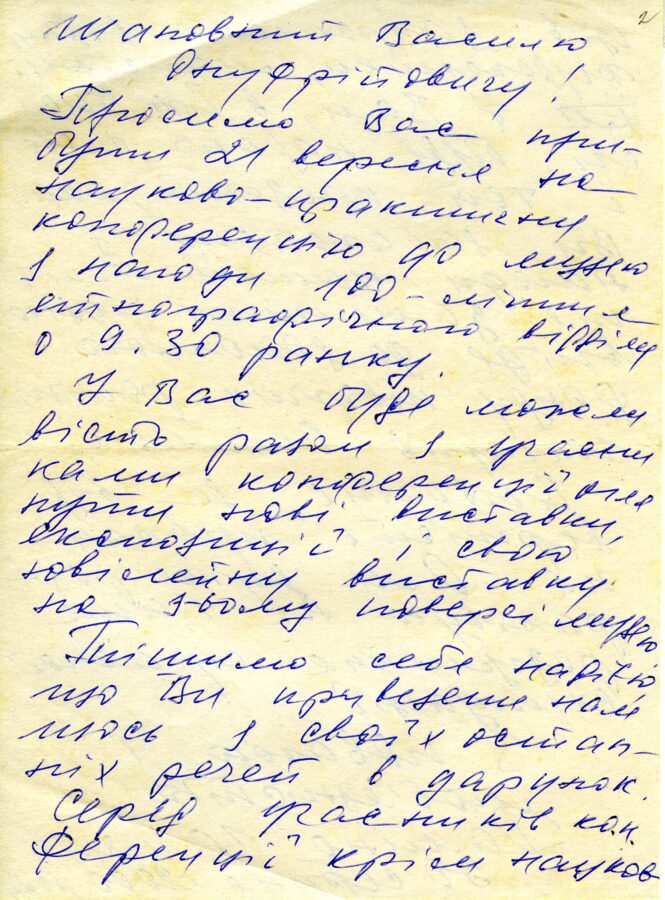 2
Шановний Василю
Онуфрійовичу!
Просимо Вас при-
бути 21 вересня на
науково-практичну
конференцію до музею
з нагоди 100-ліття
етнографічного відділу
о 9.30 ранку.
У Вас буде можли
вість разом з учасни
ками конференції огля
нути нові виставки,
експозиції і свою
ювілейну виставку
на 3-ьому поверсі музею
Тішимо себе надією
що Ви привезете нам
щось з своїх остан-
ніх речей в дарунок.
Серед учасників кон
ференції крім науков